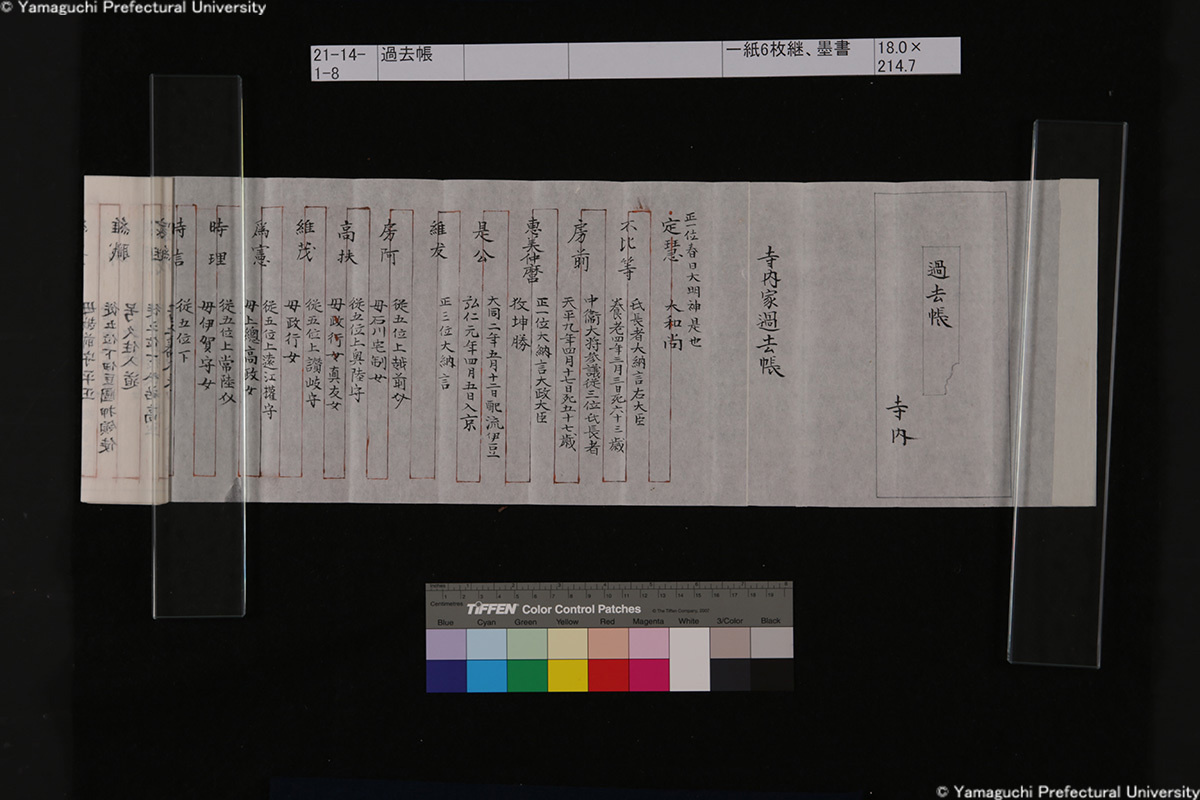 © Yamaguchi Prefectural University
21-14-1-8
過去帳
一紙6枚継、墨書
18.0×214.7
過去帳
寺内
寺内家過去帳
正一位春日大明神是也
定慧 大和尚
不比等 氏長者大納言右大臣
養老四年三月三日死六十三歳
房前 中衛大将参議従三位氏長者
天平九年四月十七日死五十七歳
恵美仲麿 正一位大納言大政大臣
改坤勝
是公 大同二年五月十二日配流伊豆
弘仁元年四月五日入京
雄友 正三位大納言
房阿 従五位上越前
母石川
高扶 従五位上奥陸守
母政行女真友女
維茂 従五位上讃岐守
母政行女
為憲 従五位上遠江権守
母上総高政女
時理 従五位上常陸
母伊賀守女
時信 従五位下
維職
従五位下伊豆國押領使
号久住入道
Inches
Centimetres
TIFFEN Color Control Patches
© The Tiffen Company, 2007
Blue Cyan Green Yellow Red Magenta White 3/Color Black
© Yamaguchi Prefectural University